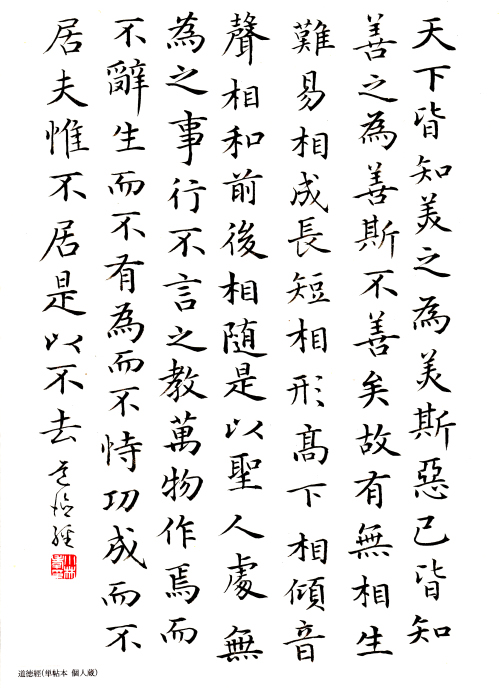 天下皆知美之為美斯惡已皆知
善之為善斯不善矣故有無相生
難易相成長短相形高下相傾音
聲相和前後相隨是以聖人處無
為之事行不言之教萬物作焉而
不辭生而不有為而不恃功成而不
居夫惟不居是以不去道德經
道德經(単帖本 個人蔵)